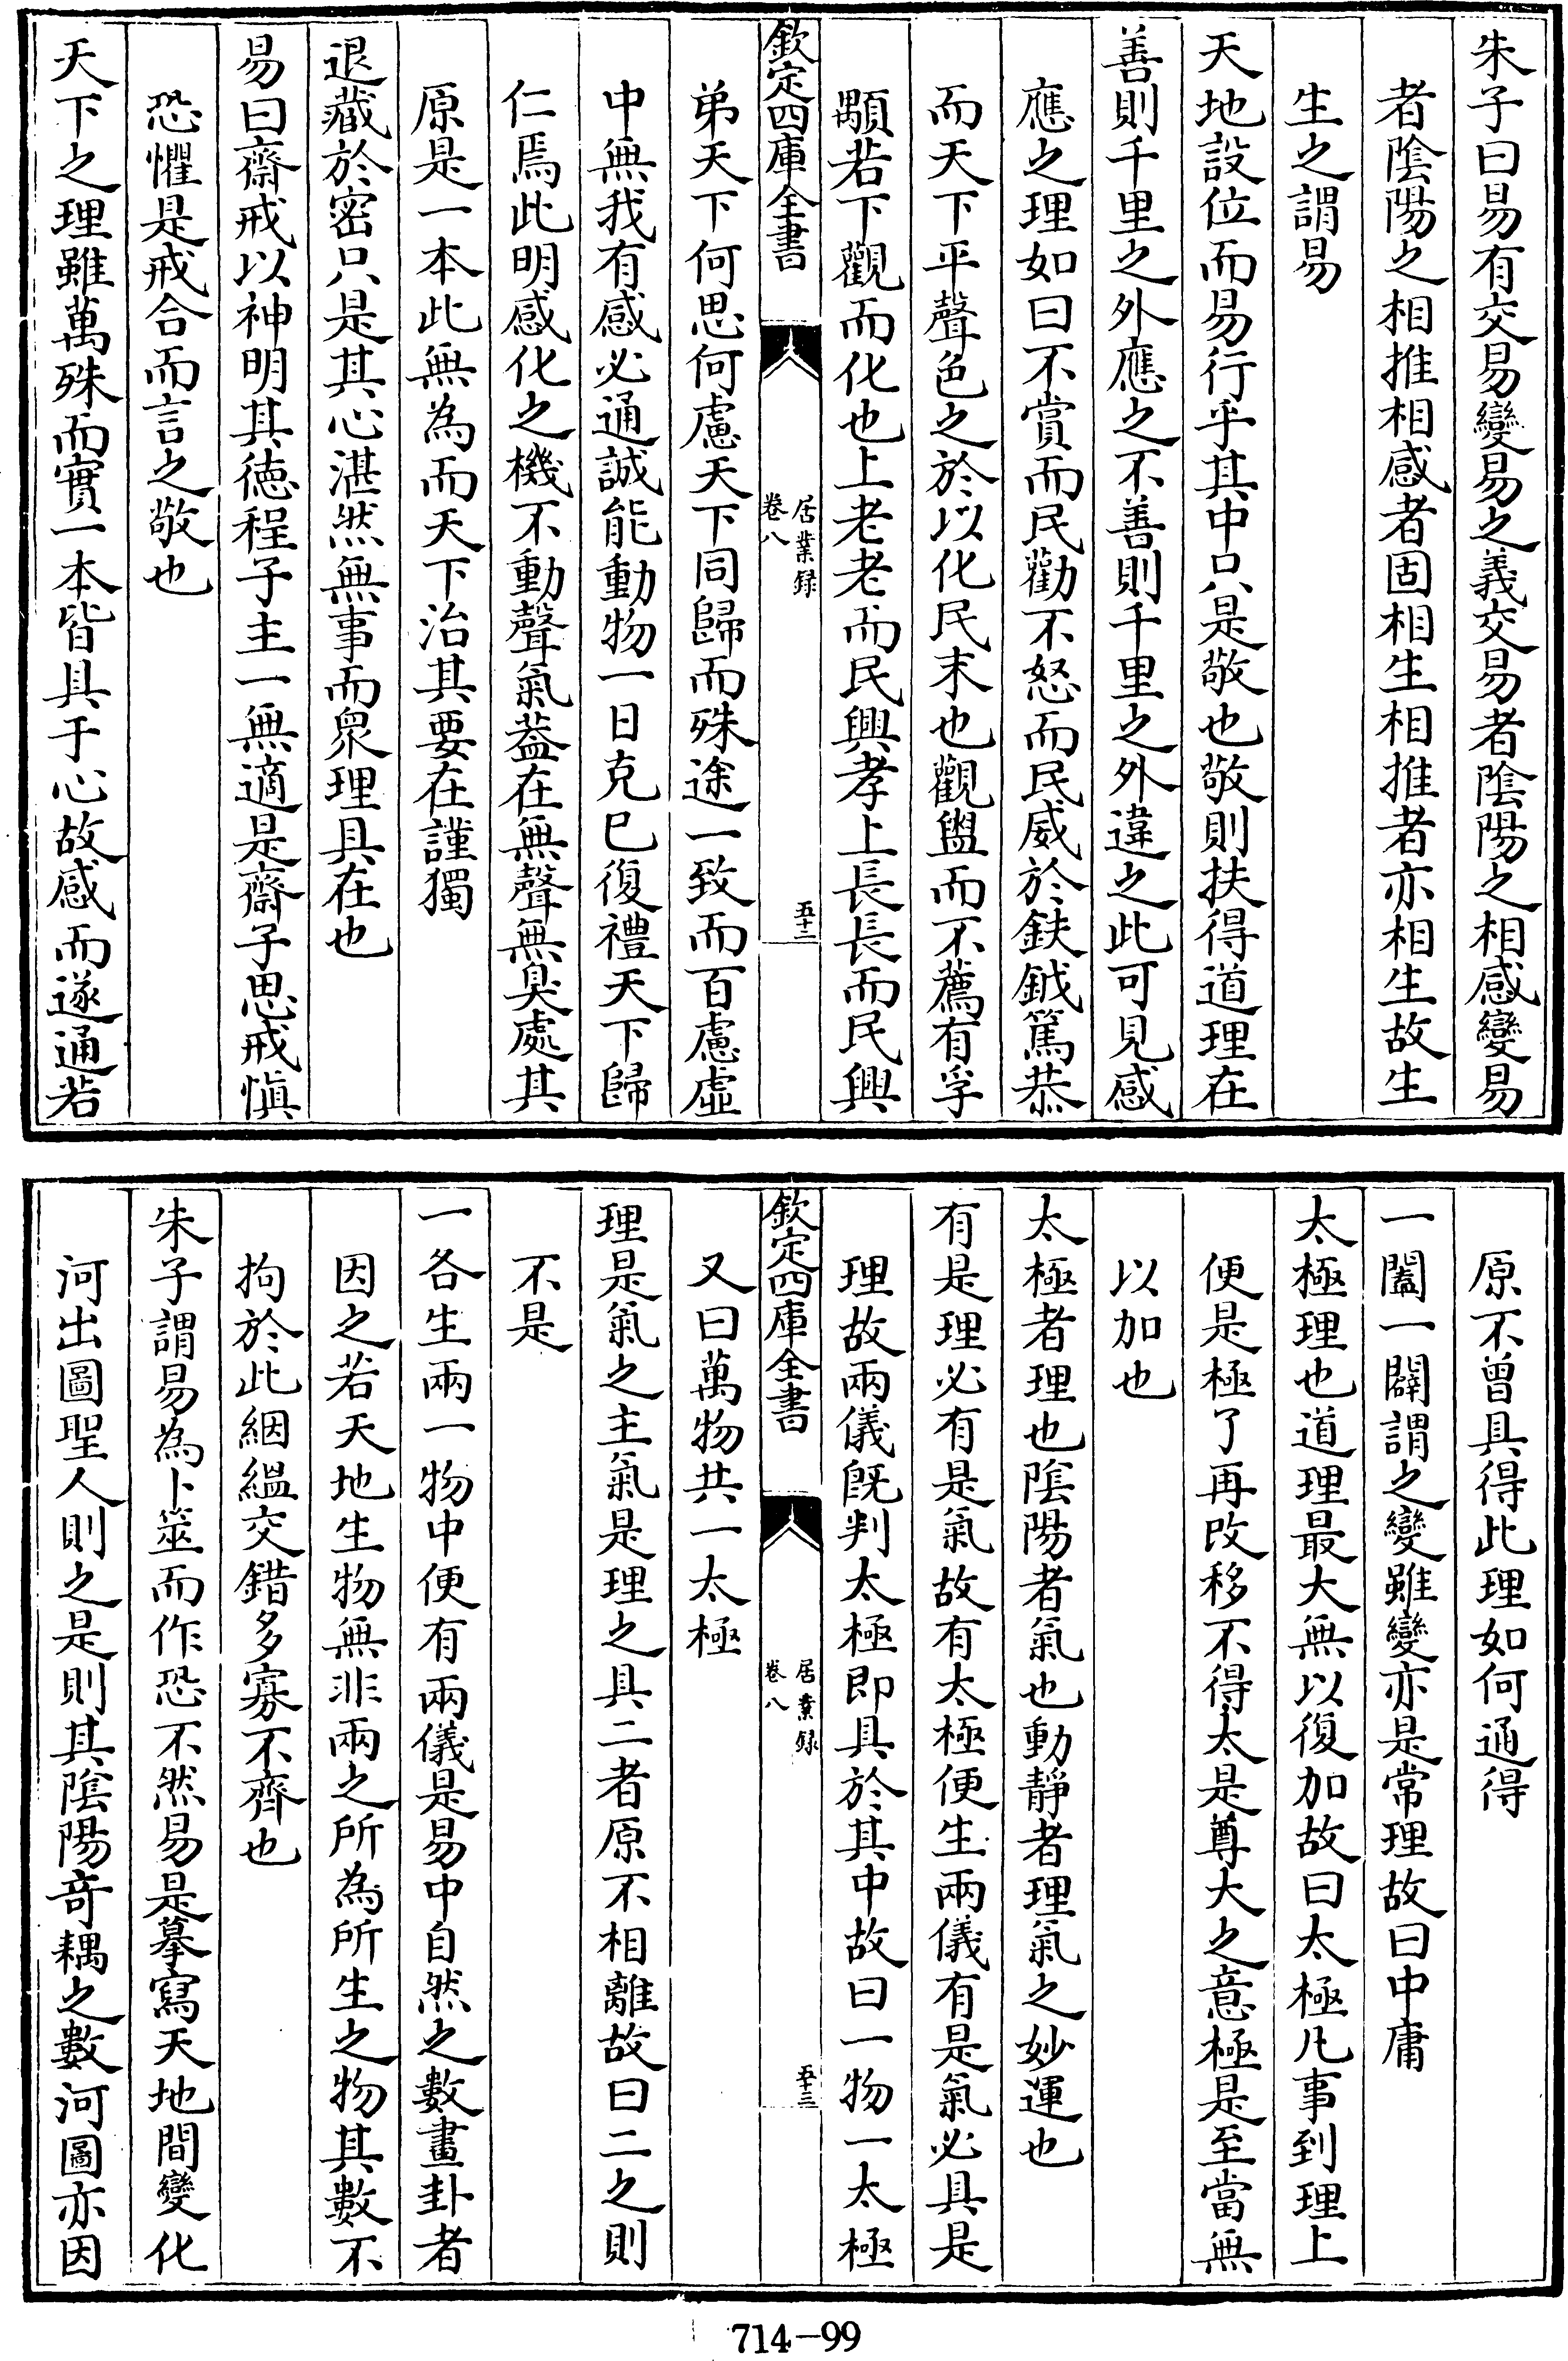 朱子曰易有交易變易之義交易者陰陽之相感變易
者陰陽之相推相感者固相生相推者亦相生故生
生之謂易
天地設位而易行乎其中只是敬也敬則扶得道理在
善則千里之外應之不善則千里之外違之此可見感
應之理如曰不賞而民勸不怒而民威於鈇鉞篤恭
而天下平聲色之於以化民末也觀盥而不薦有孚
顒若下觀而化也上老老而民興孝上長長而民興
欽定四庫全書
居業録
卷八
五十二
弟天下何思何慮天下同歸而殊途一致而百慮虛
中無我有感必通誠能動物一日克巳復禮天下歸
仁焉此明感化之機不動聲氣葢在無聲無臭處其
原是一本此無為而天下治其要在謹獨
退藏於密只是其心湛然無事而衆理具在也
易曰齋戒以神明其德程子主一無適是齋子思戒慎
恐懼是戒合而言之敬也
天下之理雖萬殊而實一本皆具于心故感而遂通若
原不曾具得此理如何通得
一闔一闢謂之變雖變亦是常理故曰中庸
太極理也道理最大無以復加故曰太極凡事到理上
便是極了再改移不得太是尊大之意極是至當無
以加也
太極者理也陰陽者氣也動靜者理氣之妙運也
有是理必有是氣故有太極便生兩儀有是氣必具是
理故兩儀既判太極即具於其中故曰一物一太極
欽定四庫全書
居業録
卷八
五十三
又曰萬物共一太極
理是氣之主氣是理之具二者原不相離故曰二之則
不是
一各生兩一物中便有兩儀是易中自然之數畫卦者
因之若天地生物無非兩之所為所生之物其數不
拘於此絪縕交錯多寡不齊也
朱子謂易為卜筮而作恐不然易是摹寫天地間變化
河出圖聖人則之是則其陰陽竒耦之數河圖亦因
714-99